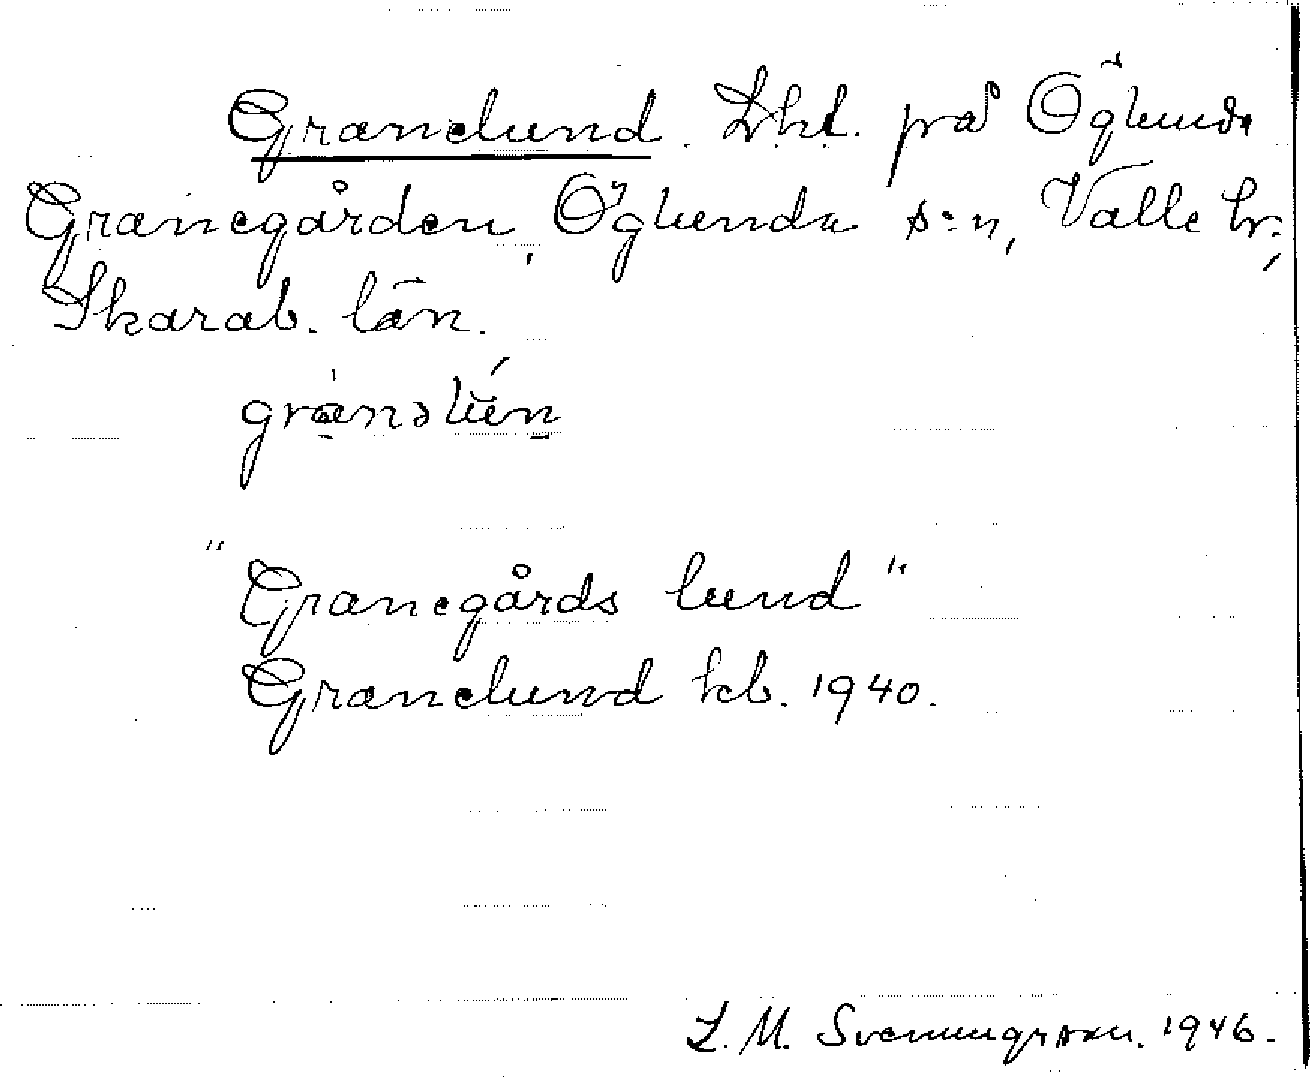 Granelund. Lht. på Öglunda
Granegården, Öglunda s:n, Valle hr.,
Skarab. län.
"Granegårds lund"
Granelund kb. 1940.
L. M. Svenungsson. 1946.